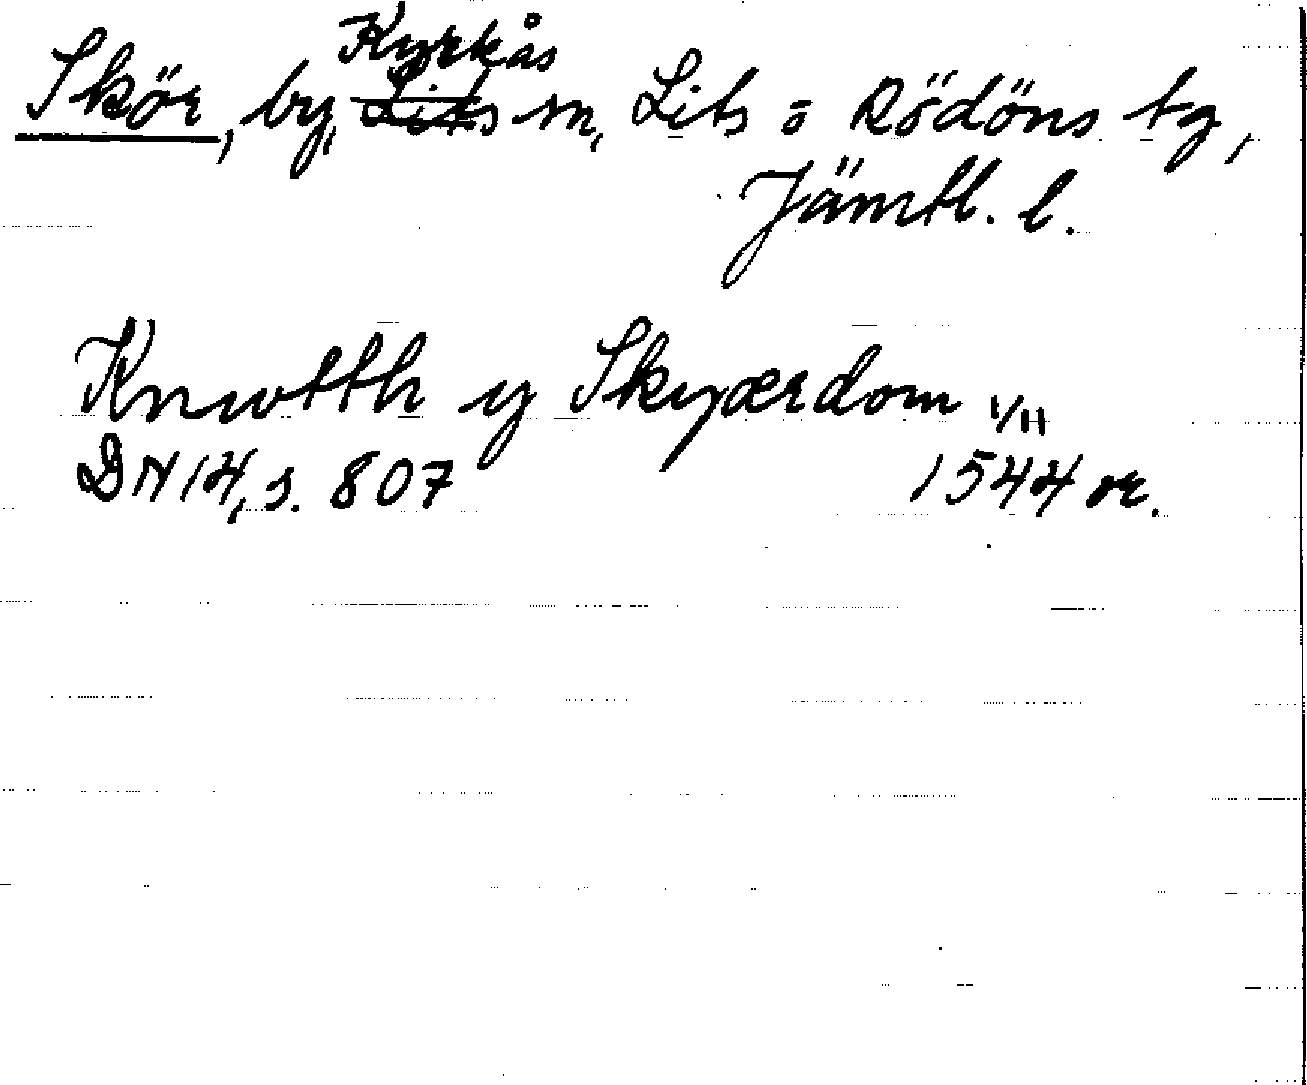 Kyrkås
Skör, by, Lits sn, Lits o Rödöns tg,
Jämtl. l.
Knwtth y Skyærdom 1/11
DN 14, s. 807 1544 or.